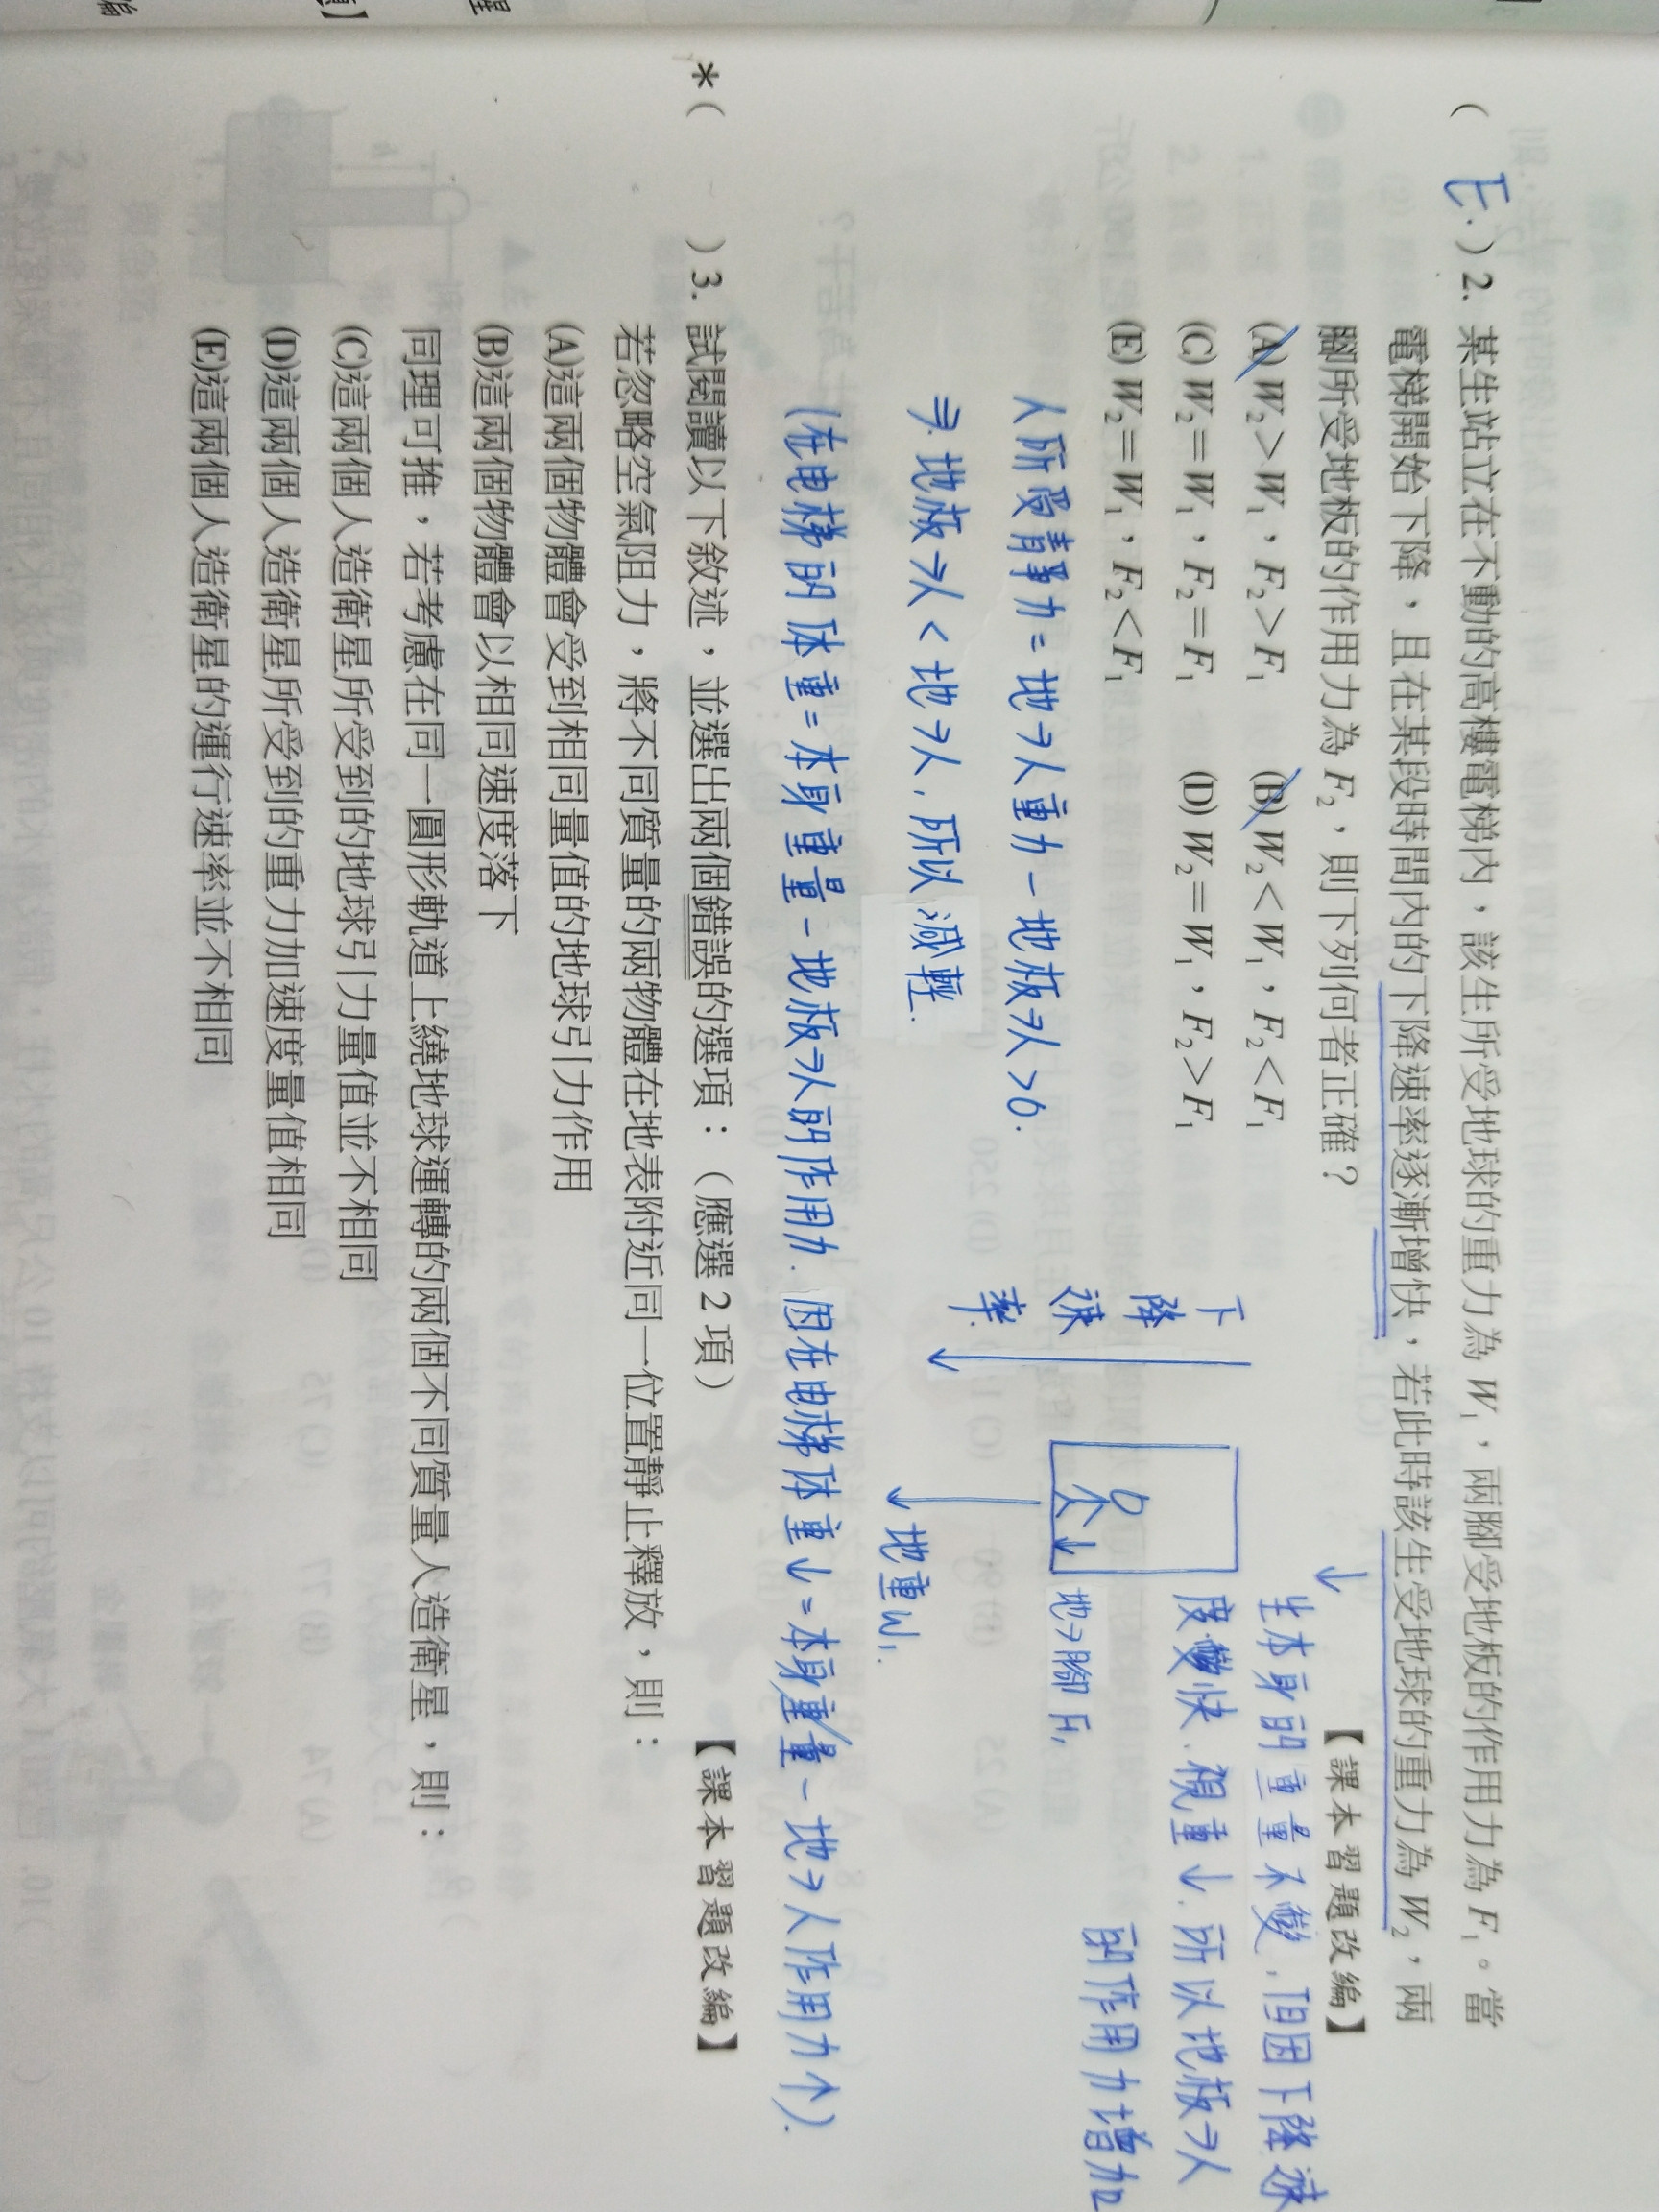 ( E. ) 2. 某生站立在不動的高樓電梯內，該生所受地球的重力為 W₁，兩腳受地板的作用力為 F₁。當
電梯開始下降，且在某段時間內的下降速率逐漸增快，若此時該生受地球的重力為 W₂，兩
腳所受地板的作用力為 F₂，則下列何者正確？
【課本習題改編】
(A) W₂＞W₁，F₂＞F₁
(B) W₂＜W₁，F₂＜F₁
(C) W₂＝W₁，F₂＝F₁
(D) W₂＝W₁，F₂＞F₁
(E) W₂＝W₁，F₂＜F₁
↓
生本身的重量不變，但因下降速
度變快．視重↓．所以地板→人
的作用力增加
下降速率
地→腳 F₁
地重W₁
人所受靜力＝地→人重力－地板→人＞0.
⇒ 地板→人＜地→人，所以減輕.
(在电梯的体重＝本身重量－地板→人的作用力．因在电梯体重↓＝本身重量－地→人作用力↑).
*( ) 3. 試閱讀以下敘述，並選出兩個錯誤的選項：（應選 2 項）
【課本習題改編】
若忽略空氣阻力，將不同質量的兩物體在地表附近同一位置靜止釋放，則：
(A)這兩個物體會受到相同量值的地球引力作用
(B)這兩個物體會以相同速度落下
同理可推，若考慮在同一圓形軌道上繞地球運轉的兩個不同質量人造衛星，則：
(C)這兩個人造衛星所受到的地球引力量值並不相同
(D)這兩個人造衛星所受到的重力加速度量值相同
(E)這兩個人造衛星的運行速率並不相同